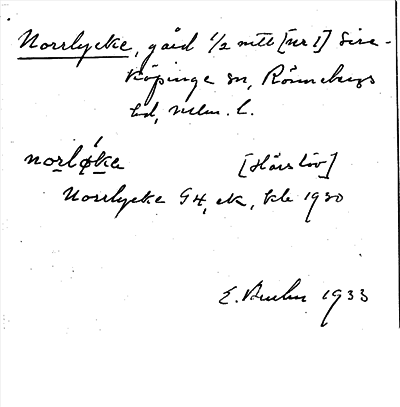 Norrlycke, gård 1/2 mtl [nr 1] Sire-
köpinge sn, Rönnebergs
hd, Mlm. l.
norløke [Härslöv]
Norrlycke G4, ek, kb 1930
E. Bruhn 1933